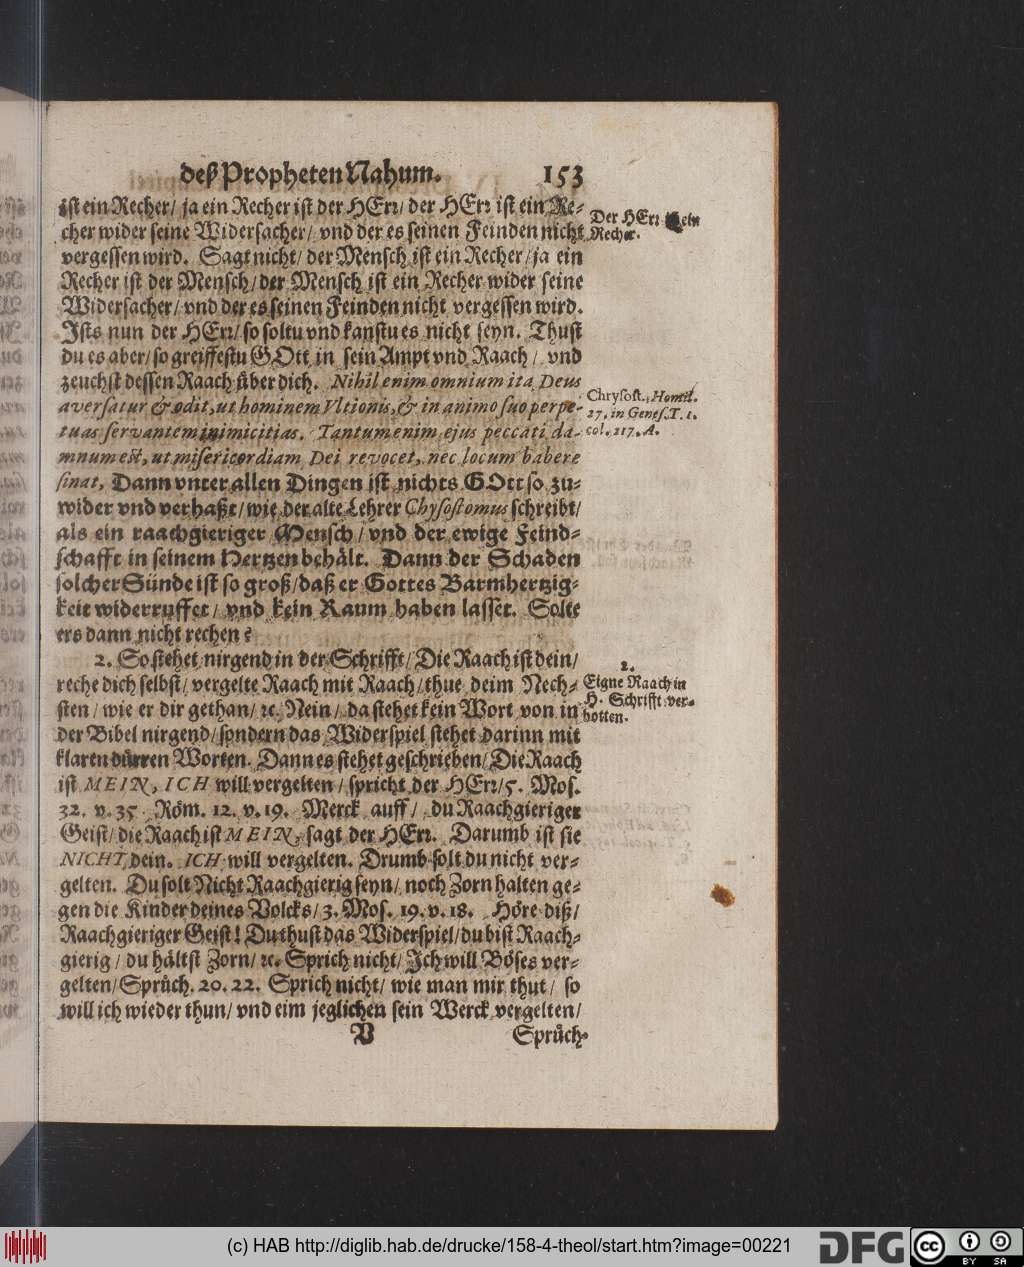 deß Propheten Nahum. 153
ist ein Recher/ ja ein Recher ist der HErr/ der HErr ist ein Re-
cher wider seine Widersacher/ vnd der es seinen Feinden nicht
vergessen wird. Sagt nicht/ der Mensch ist ein Recher/ ja ein
Recher ist der Mensch/ der Mensch ist ein Recher wider seine
Widersacher/ vnd der es seinen Feinden nicht vergessen wird.
Ists nun der HErr/ so soltu vnd kanstu es nicht seyn. Thust
du es aber/ so greiffestu GOtt in sein Ampt vnd Raach/ vnd
zeuchst dessen Raach über dich. Nihil enim omnium ita Deus
aversatur & odit, ut hominem Vltionis, & in animo suo perpe-
tuas servantem inimicitias. Tantum enim ejus peccati da-
mnum est, ut misericordiam Dei revocet, nec locum habere
sinat, Dann vnter allen Dingen ist nichts GOtt so zu-
wider vnd verhaßt/ wie der alte Lehrer Chysostomus schreibt/
als ein raachgieriger Mensch/ vnd der ewige Feind-
schafft in seinem Hertzen behält. Dann der Schaden
solcher Sünde ist so groß/ daß er Gottes Barmhertzig-
keit widerruffet/ vnd kein Raum haben lasset. Solte
ers dann nicht rechen?
2. So stehet nirgend in der Schrifft/ Die Raach ist dein/
reche dich selbst/ vergelte Raach mit Raach/ thue deim Nech-
sten/ wie er dir gethan/ ꝛc. Nein/ da stehet kein Wort von in
der Bibel nirgend/ sondern das Widerspiel stehet darinn mit
klaren dürren Worten. Dann es stehet geschrieben/ Die Raach
ist MEIN, ICH will vergelten/ spricht der HErr/ 5. Mos.
32. v. 35. Röm. 12. v. 19. Merck auff/ du Raachgieriger
Geist/ die Raach ist MEIN, sagt der HErr. Darumb ist sie
NICHT dein. ICH will vergelten. Drumb solt du nicht ver-
gelten. Du solt Nicht Raachgierig seyn/ noch Zorn halten ge-
gen die Kinder deines Volcks/ 3. Mos. 19. v. 18. Höre diß/
Raachgieriger Geist! Du thust das Widerspiel/ du bist Raach-
gierig/ du hältst Zorn/ ꝛc. Sprich nicht/ Ich will Böses ver-
gelten/ Sprüch. 20. 22. Sprich nicht/ wie man mir thut/ so
will ich wieder thun/ vnd eim jeglichen sein Werck vergelten/
V Sprüch.
Der HErr ein
Recher.
Chrysost. Homil.
27. in Genes. T. 1.
col. 217. A.
2.
Eigne Raach in
H. Schrifft ver-
botten.
(c) HAB http://diglib.hab.de/drucke/158-4-theol/start.htm?image=00221
DFG
cc BY SA